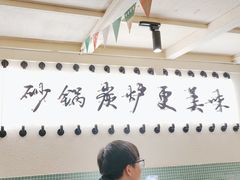 砂锅炭炉更美味